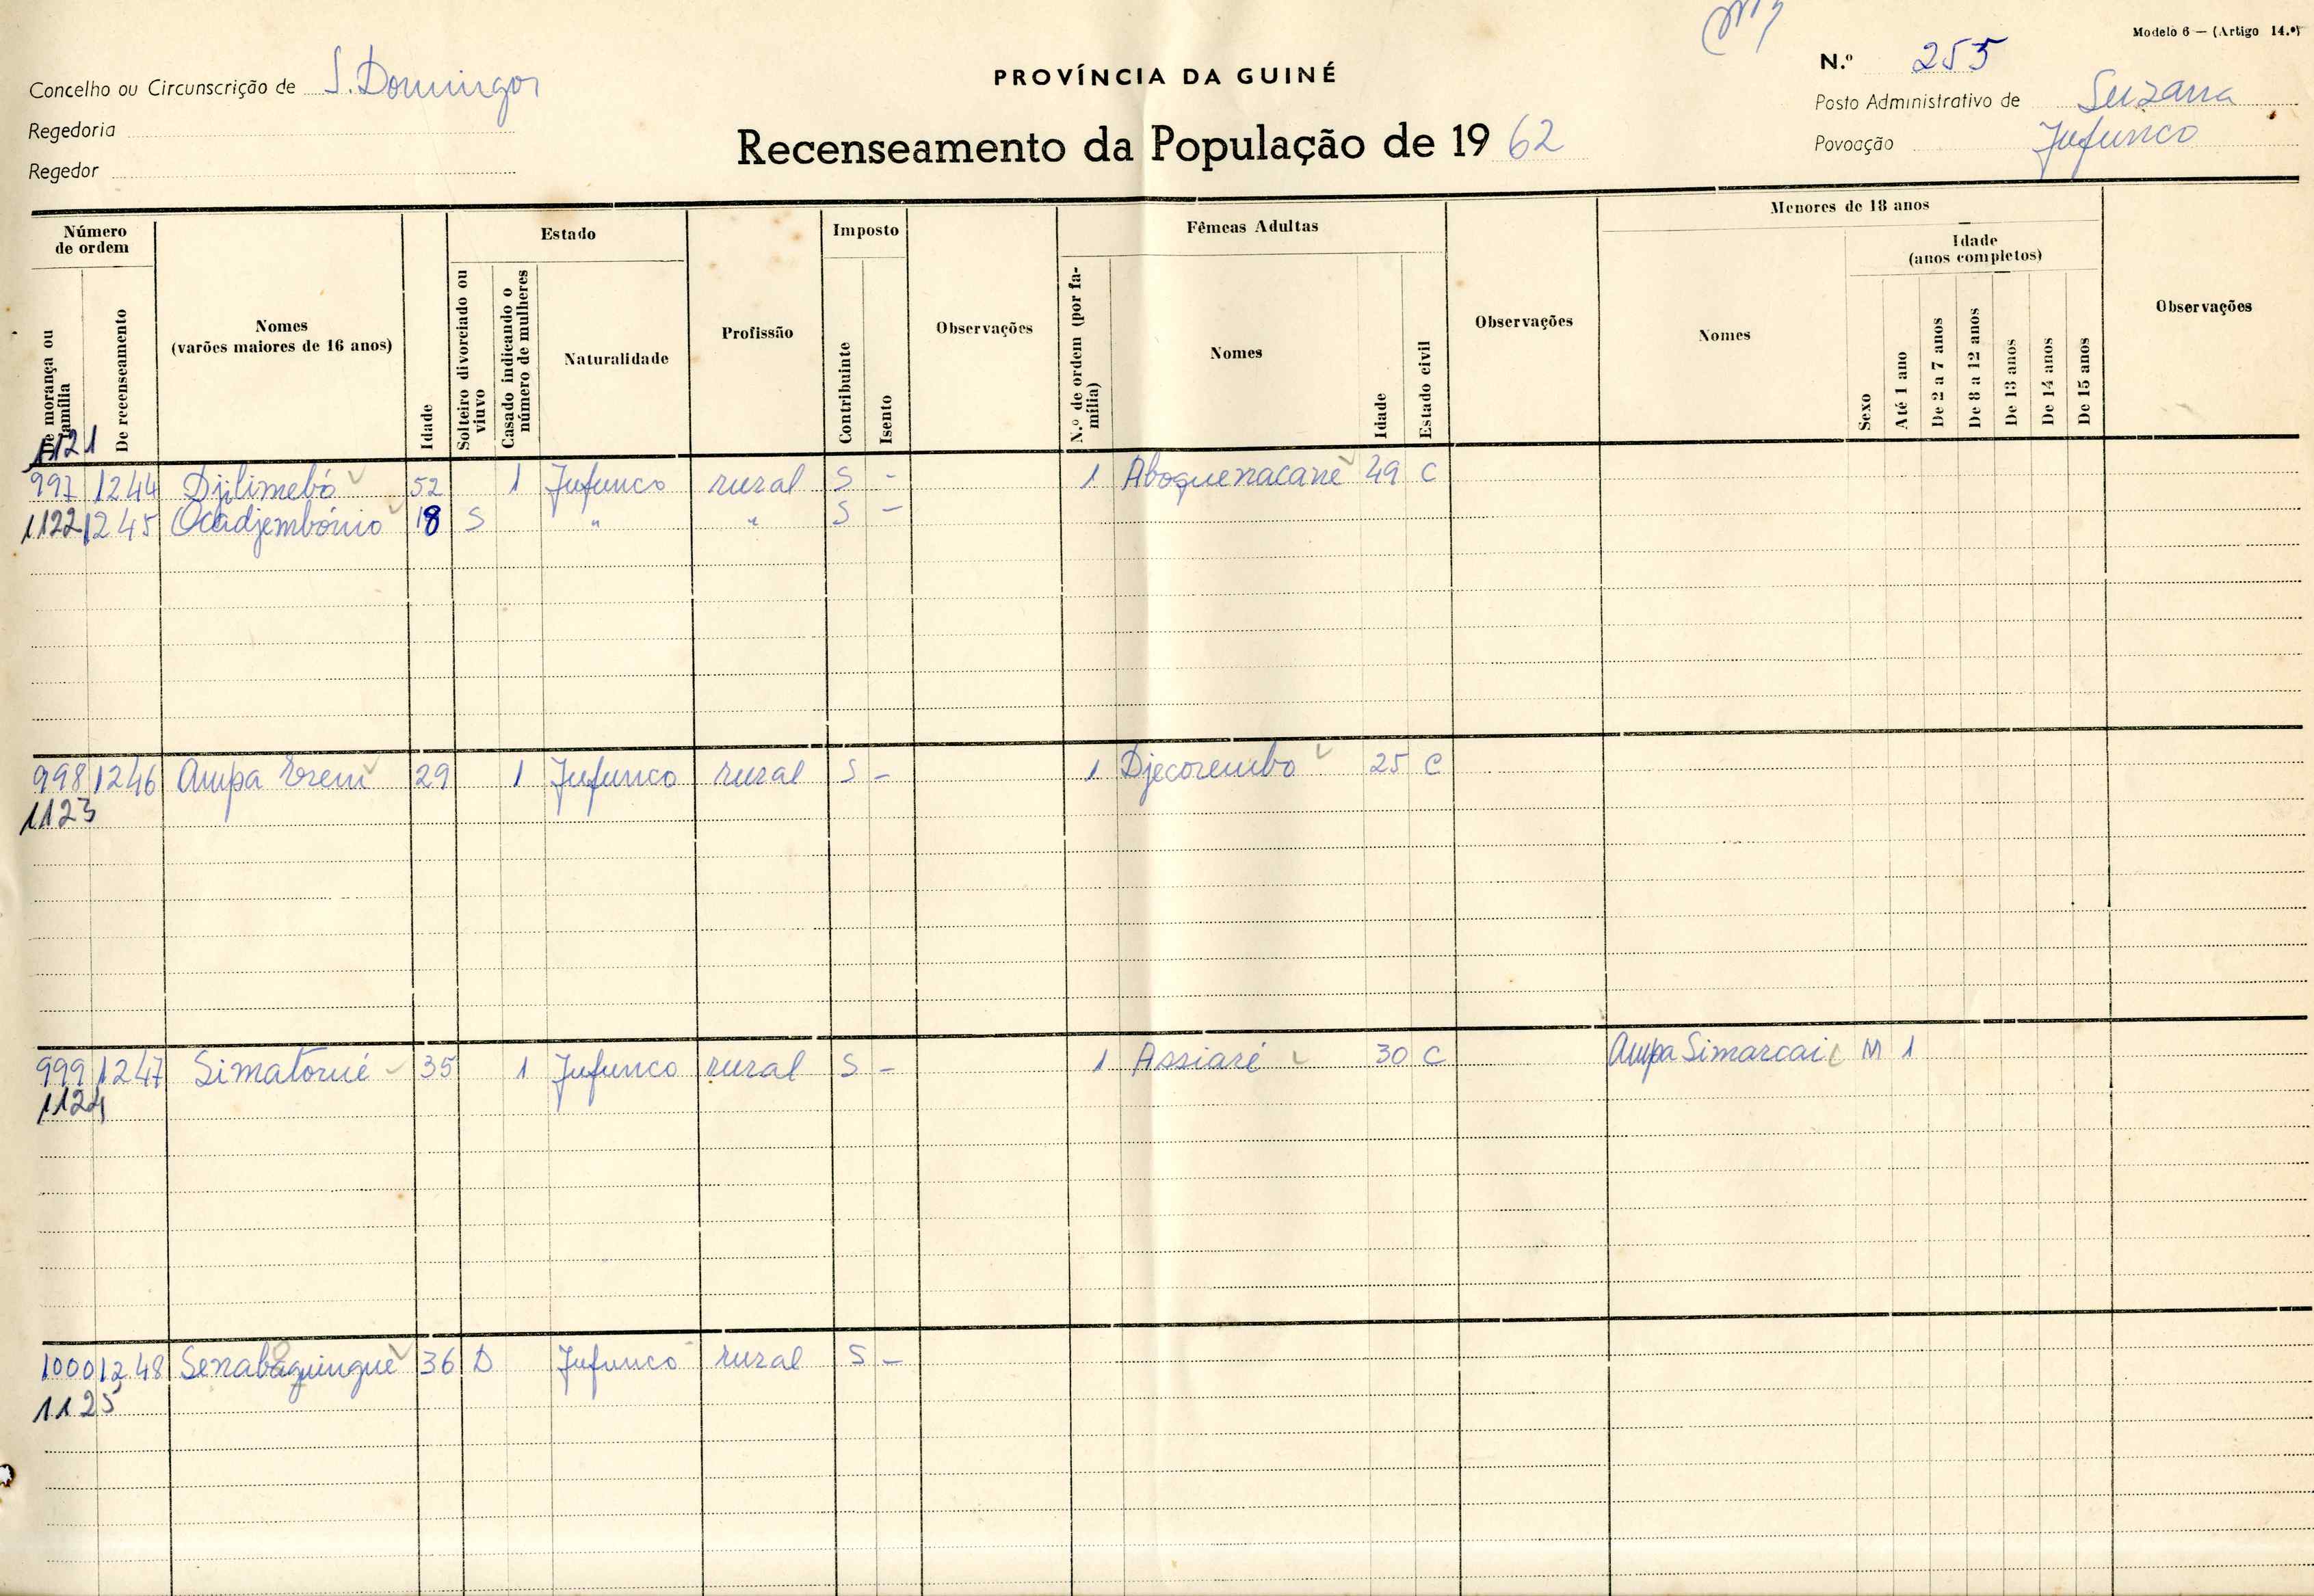 Modelo 6 — (Artigo 14.º)
N.º 255
PROVÍNCIA DA GUINÉ
Concelho ou Circunscrição de S. Domingos
Posto Administrativo de Suzana
Regedoria
Recenseamento da População de 1962
Povoação Jufunco
Regedor
Número de ordem
De morança ou família
De recenseamento
Nomes
(varões maiores de 16 anos)
Idade
Estado
Solteiro divorciado ou viuvo
Casado indicando o número de mulheres
Naturalidade
Profissão
Imposto
Contribuinte
Isento
Observações
Fêmeas Adultas
N.º de ordem (por família)
Nomes
Idade
Estado civil
Observações
Menores de 18 anos
Nomes
Idade
(anos completos)
Sexo
Até 1 ano
De 2 a 7 anos
De 8 a 12 anos
De 13 anos
De 14 anos
De 15 anos
Observações
1121
997 1244 Djilimebó 52 1 Jufunco rural S - 1 Aboquenacane 49 C
1122 1245 Ocadjembónio 18 S " " S -
998 1246 Ampa Ereni 29 1 Jufunco rural S - 1 Djecorembo 25 C
1123
999 1247 Simatorué 35 1 Jufunco rural S - 1 Assiaré 30 C Ampa Simarcai M 1
1124
1000 1248 Senabaquingue 36 D Jufunco rural S -
1125